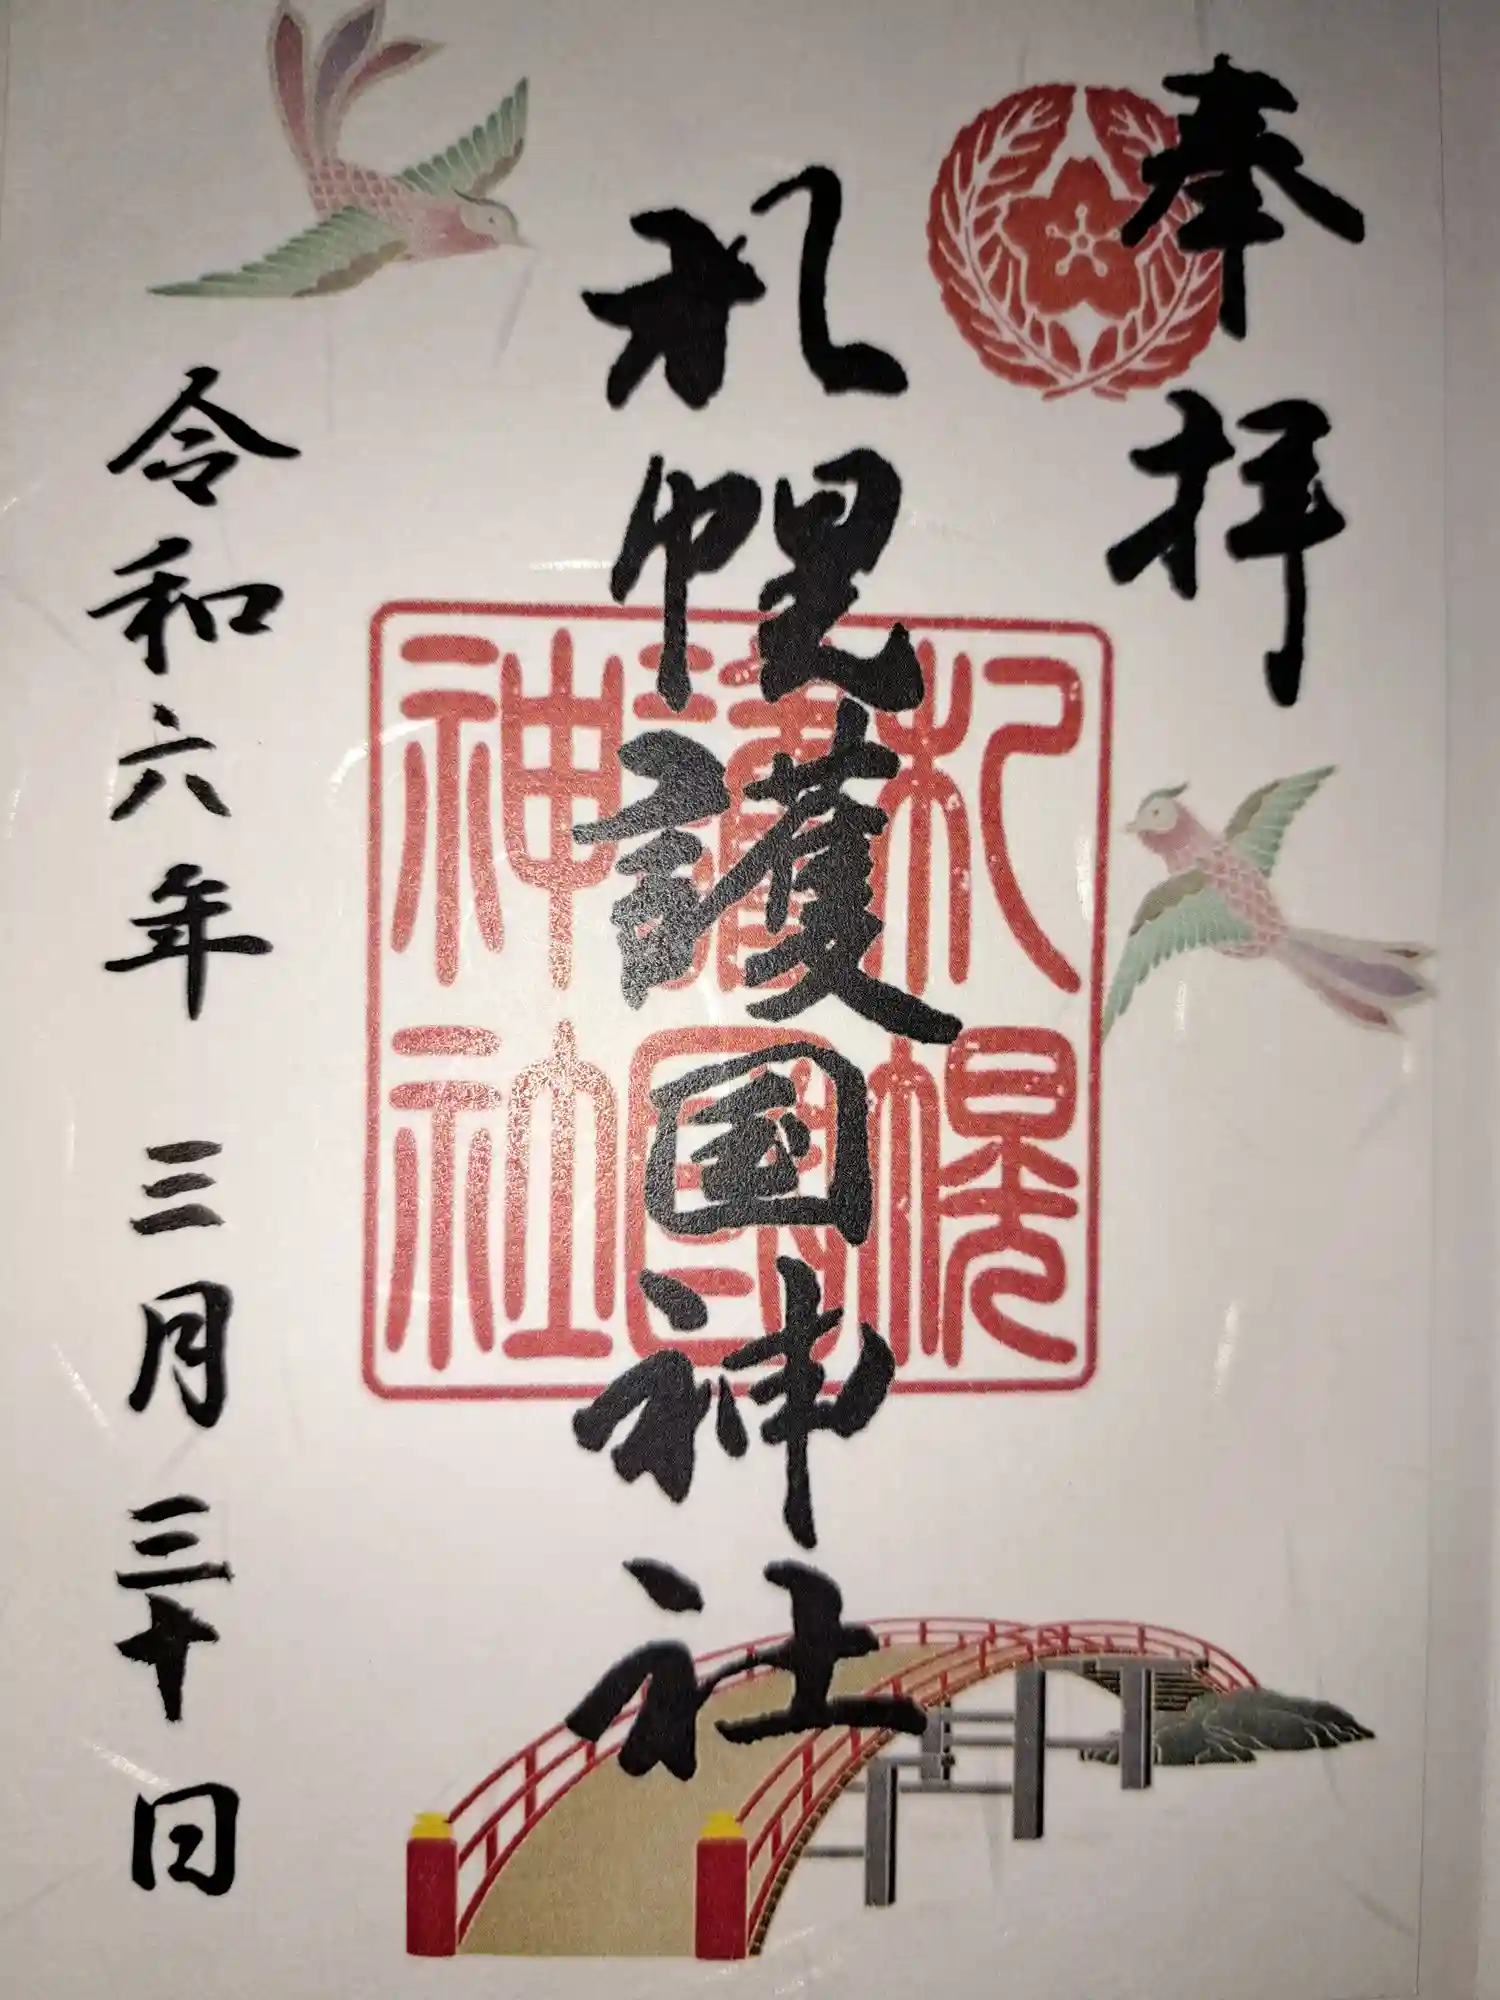 奉拝
札幌護国神社
札幌
護國
神社
令和六年 三月三十日